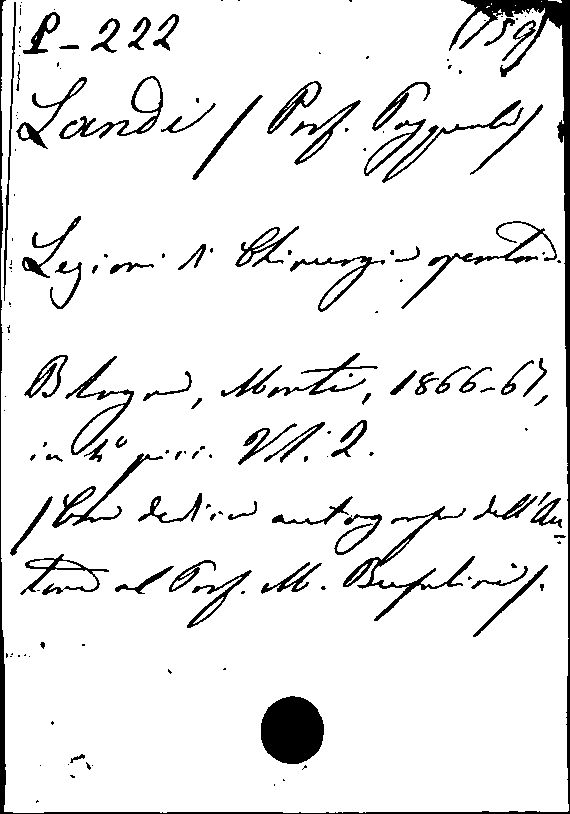 P-222 (159)
Landi (Prof. Pasquale)
Lezioni di Chirurgia operatoria.
Bologna, Monti, 1866-67,
in 4° picc. Vl. 2.
(Con dedica autografa dell'Au-
tore al Prof. M. Bufalini).